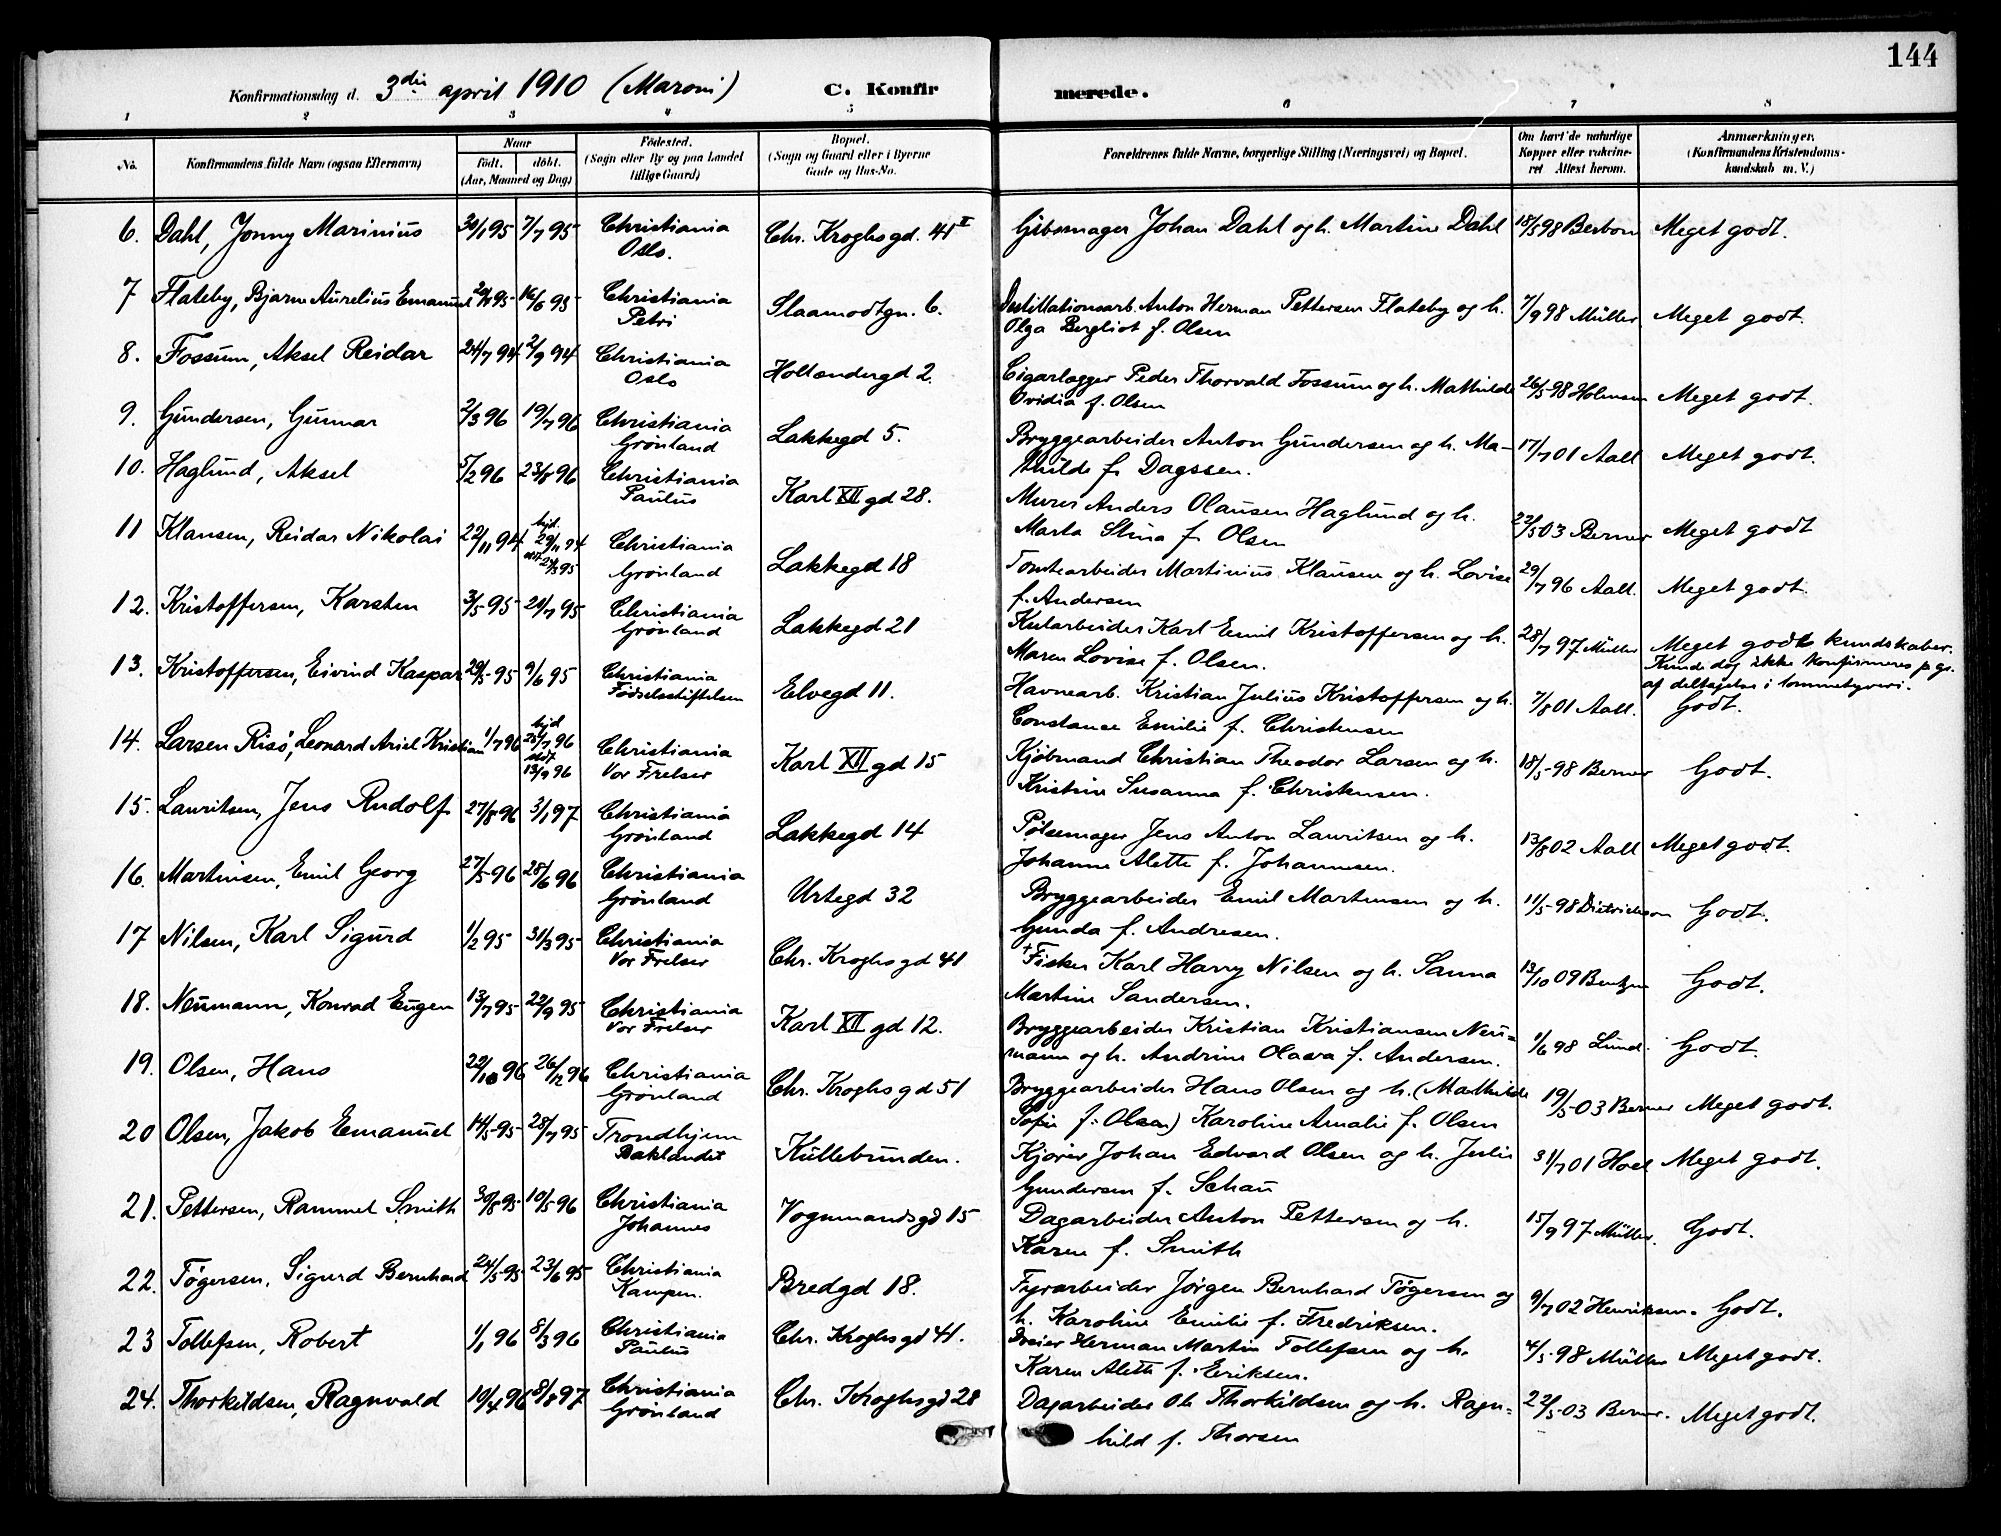 144
Konfirmationsdag d. 3die april 1910 (Maroni) C. Konfirmerede.
1 2 3 4 5 6 7 8
No. Konfirmandens fulde Navn (ogsaa Efternavn) Naar født. døbt. (Aar, Maaned og Dag) Fødested. (Sogn eller By og paa Landet tillige Gaard) Bopæl. (Sogn og Gaard eller i Byerne Gade og Hus-No. Forældrenes fulde Navne, borgerlige Stilling (Næringsvei) og Bopæl. Om havt de naturlige Kopper eller vaksineret Attest herom. Anmærkninger. (Konfirmandens Kristendomskundskab m. V.)
6. Dahl, Jonny Marinius 30/1 95 7/7 95 Christiania Oslo. Chr. Kroghsgd. 41 I Gibsmager Johan Dahl og h. Martine Dahl 18/5 98 Meget godt.
7 Flateby, Bjarne Aurelius Emanuel 95 16/6 95 Christiania Petri Slaamodtgn. 6. Destillationsarb. Anton Herman Pettersen Flateby og h. Olga Bergliot f. Olsen 7/9 98 Müller. Meget godt.
8. Fossum, Aksel Reidar 24/7 94 2/9 94 Christiania Oslo Hollændergd 2. Cigarlægger Peder Thorvald Fossum og h. Mathilde Ovidia f. Olsen 26/5 98 Holmsen Meget godt.
9. Gundersen, Gunnar 2/3 96 19/7 96 Christiania Grønland Lakkegd 5. Bryggearbeider Anton Gundersen og h. Mathilde f. Dagssen. 17/7 01 Aall Meget godt.
10. Haglund, Aksel 5/2 96 23/8 96 Christiania Paulus Karl XII gd 28. Murer Anders Olausen Haglund og h. Marta Stina f. Olsen 22/5 03 Berner Meget godt
11 Klausen, Reidar Nikolai 22/11 94 hjd. 29/11 94 stdf. 24/3 95 Christiania Grønland Lakkegd 18 Tomtearbeider Martinius Klausen og h. Lovise f. Andersen 29/7 96 Aall. Meget godt.
12. Kristoffersen, Karsten 3/5 95 21/7 95 Christiania Grønland Lakkegd 21 Kularbeider Karl Emil Kristoffersen og h. Maren Lovise f. Olsen. 28/7 97 Müller Meget gode kundskaber. Kunde dog ikke konfirmeres p. gr. af deltagelse i lommetyveri.
13. Kristoffersen, Eivind Kaspar 29/5 95 9/6 95 Christiania Fødselsstiftelsen Elvegd 11. Havnearb. Kristian Julius Kristoffersen og h. Constance Emilie f. Christensen 7/8 01 Aall. Godt.
14. Larsen Risø, Leonard Ariel Kristian 1/7 96 hjd 25/7 96 stdf 13/9 96 Christiania Vor Frelser Karl XII gd 15 Kjøbmand Christian Theodor Larsen og h. Kristine Susanna f. Christensen. 18/5 98 Berner Godt.
15. Lauritsen, Jens Rudolf 27/8 96 3/1 97 Christiania Grønland Lakkegd 14 Pølsemager Jens Anton Lauritsen og h. Johanne Alette f. Johannesen. 13/8 02 Aall Meget godt.
16. Martinsen, Emil Georg 27/5 96 28/6 96 Christiania Grønland Urtegd 32 Bryggearbeider Emil Martinsen og h. Gunda f. Andresen. 11/5 98 Dietrichson Godt.
17 Nilsen, Karl Sigurd 1/2 95 31/3 95 Christiania Vor Frelser Chr. Kroghsgd 41 † Fisker Karl Harry Nilsen og h. Sanna Martine Sandersen. 13/10 09 Bentzen Godt.
18. Neumann, Konrad Eugen 13/7 95 22/9 95 Christiania Vor Frelser Karl XII gd 12. Bryggearbeider Kristian Kristiansen Neumann og h. Andrine Olava f. Andersen. 1/6 98 Lund. Godt.
19. Olsen, Hans 22/10 96 26/12 96 Christiania Grønland Chr. Kroghsgd 51 Bryggearbeider Hans Olsen og h. (Mathilde Sofie f. Olsen) Karoline Amalie f. Olsen 19/5 03 Berner Meget godt.
20 Olsen, Jakob Emanuel 14/5 95 28/7 95 Trondhjem Baklandet Kullebunden. Kjører Johan Edvard Olsen og h. Julie Gundersen f. Schau 31/7 01 Hoel Meget godt.
21. Pettersen, Rammel Smith 30/8 95 10/5 96 Christiania Johannes Vognmandsgd 15 Dagarbeider Anton Pettersen og h. Karen f. Smith 15/9 97 Müller. Godt.
22. Tøgersen, Sigurd Bernhard 24/5 95 23/6 95 Christiania Kampen. Bredgd 18. Fyrarbeider Jørgen Bernhard Tøgersen og h. Karoline Emilie f. Fredriksen. 9/7 02 Henriksen. Godt.
23 Tollefsen, Robert 1/1 96 8/3 96 Christiania Paulus Chr. Kroghsgd 41. Dreier Herman Martin Tollefsen og h. Karen Aleth f. Eriksen. 4/5 98 Müller Meget godt.
24. Thorkildsen, Ragnvald 10/4 96 8/8 97 Christiania Grønland Chr. Kroghsgd 28 Dagarbeider Ole Thorkildsen og h. Ragnhild f. Thorsen 22/5 03 Berner. Meget godt.